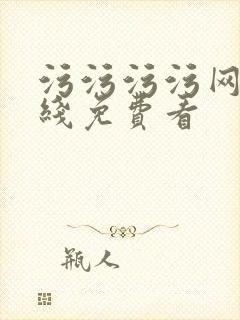 污污污污网
线免費看
瓶人